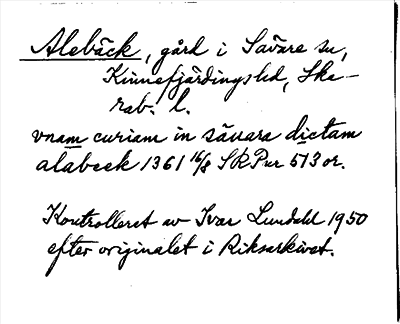 Alebäck, gård i Sävare sn,
Kinnefjärdingsled, Ska-
rab. l.
vnam curiam in säuara dictam
alabeck 1361 16/8 SRPur 573 or.
Kontrolleret av Ivar Lundahl 1950
efter originalet i Riksarkivet.